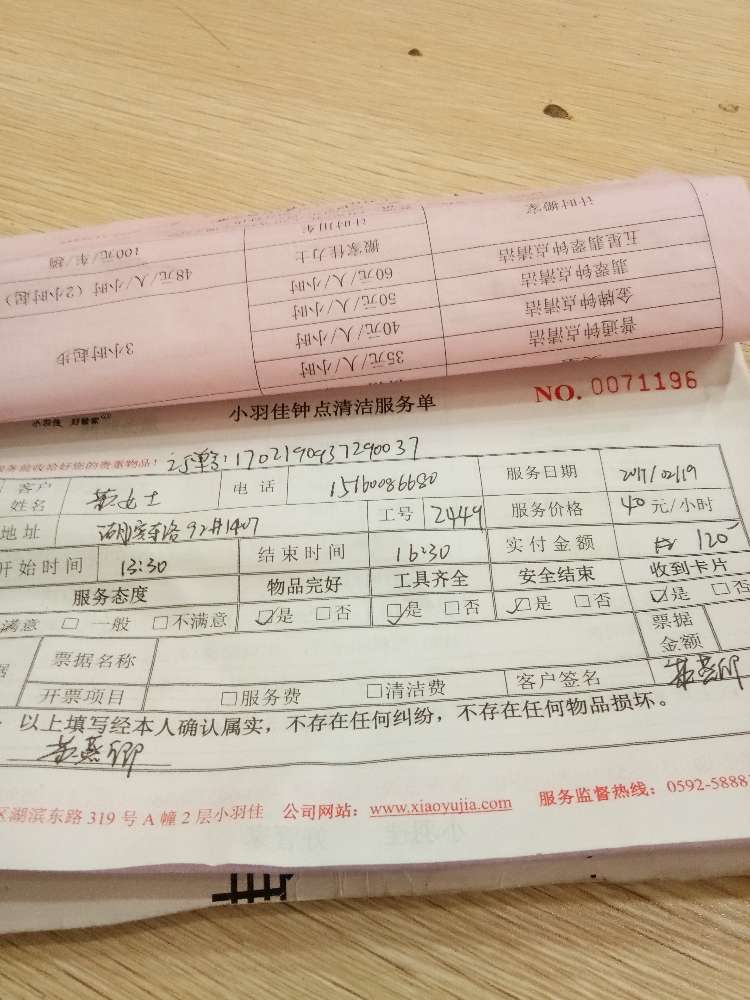 计时搬家 计时用车
搬家佳力士 100元/车/趟
五星翡翠钟点清洁 60元/人/小时 48元/人/小时(2小时起)
翡翠钟点清洁 50元/人/小时
金牌钟点清洁 40元/人/小时 3小时起步
普通钟点清洁 35元/人/小时
小羽佳 好管家
小羽佳钟点清洁服务单 NO. 0071196
验收给好您的贵重物品! 订单号:1702190937290037
客户姓名 女士 电话 15160086680 服务日期 2017/02/19
地址 92#1407 工号 2449 服务价格 40元/小时
开始时间 13:30 结束时间 16:30 实付金额 120
服务态度 物品完好 工具齐全 安全结束 收到卡片
满意 □ 一般 □不满意 ☑是 □否 ☑是 □否 ☑是 □否 ☑是 □否
据 票据名称 票据金额
开票项目 □服务费 □清洁费 客户签名
以上填写经本人确认属实,不存在任何纠纷,不存在任何物品损坏。
区湖滨东路319号A幢2层小羽佳 公司网站:www.xiaoyujia.com 服务监督热线:0592-5888